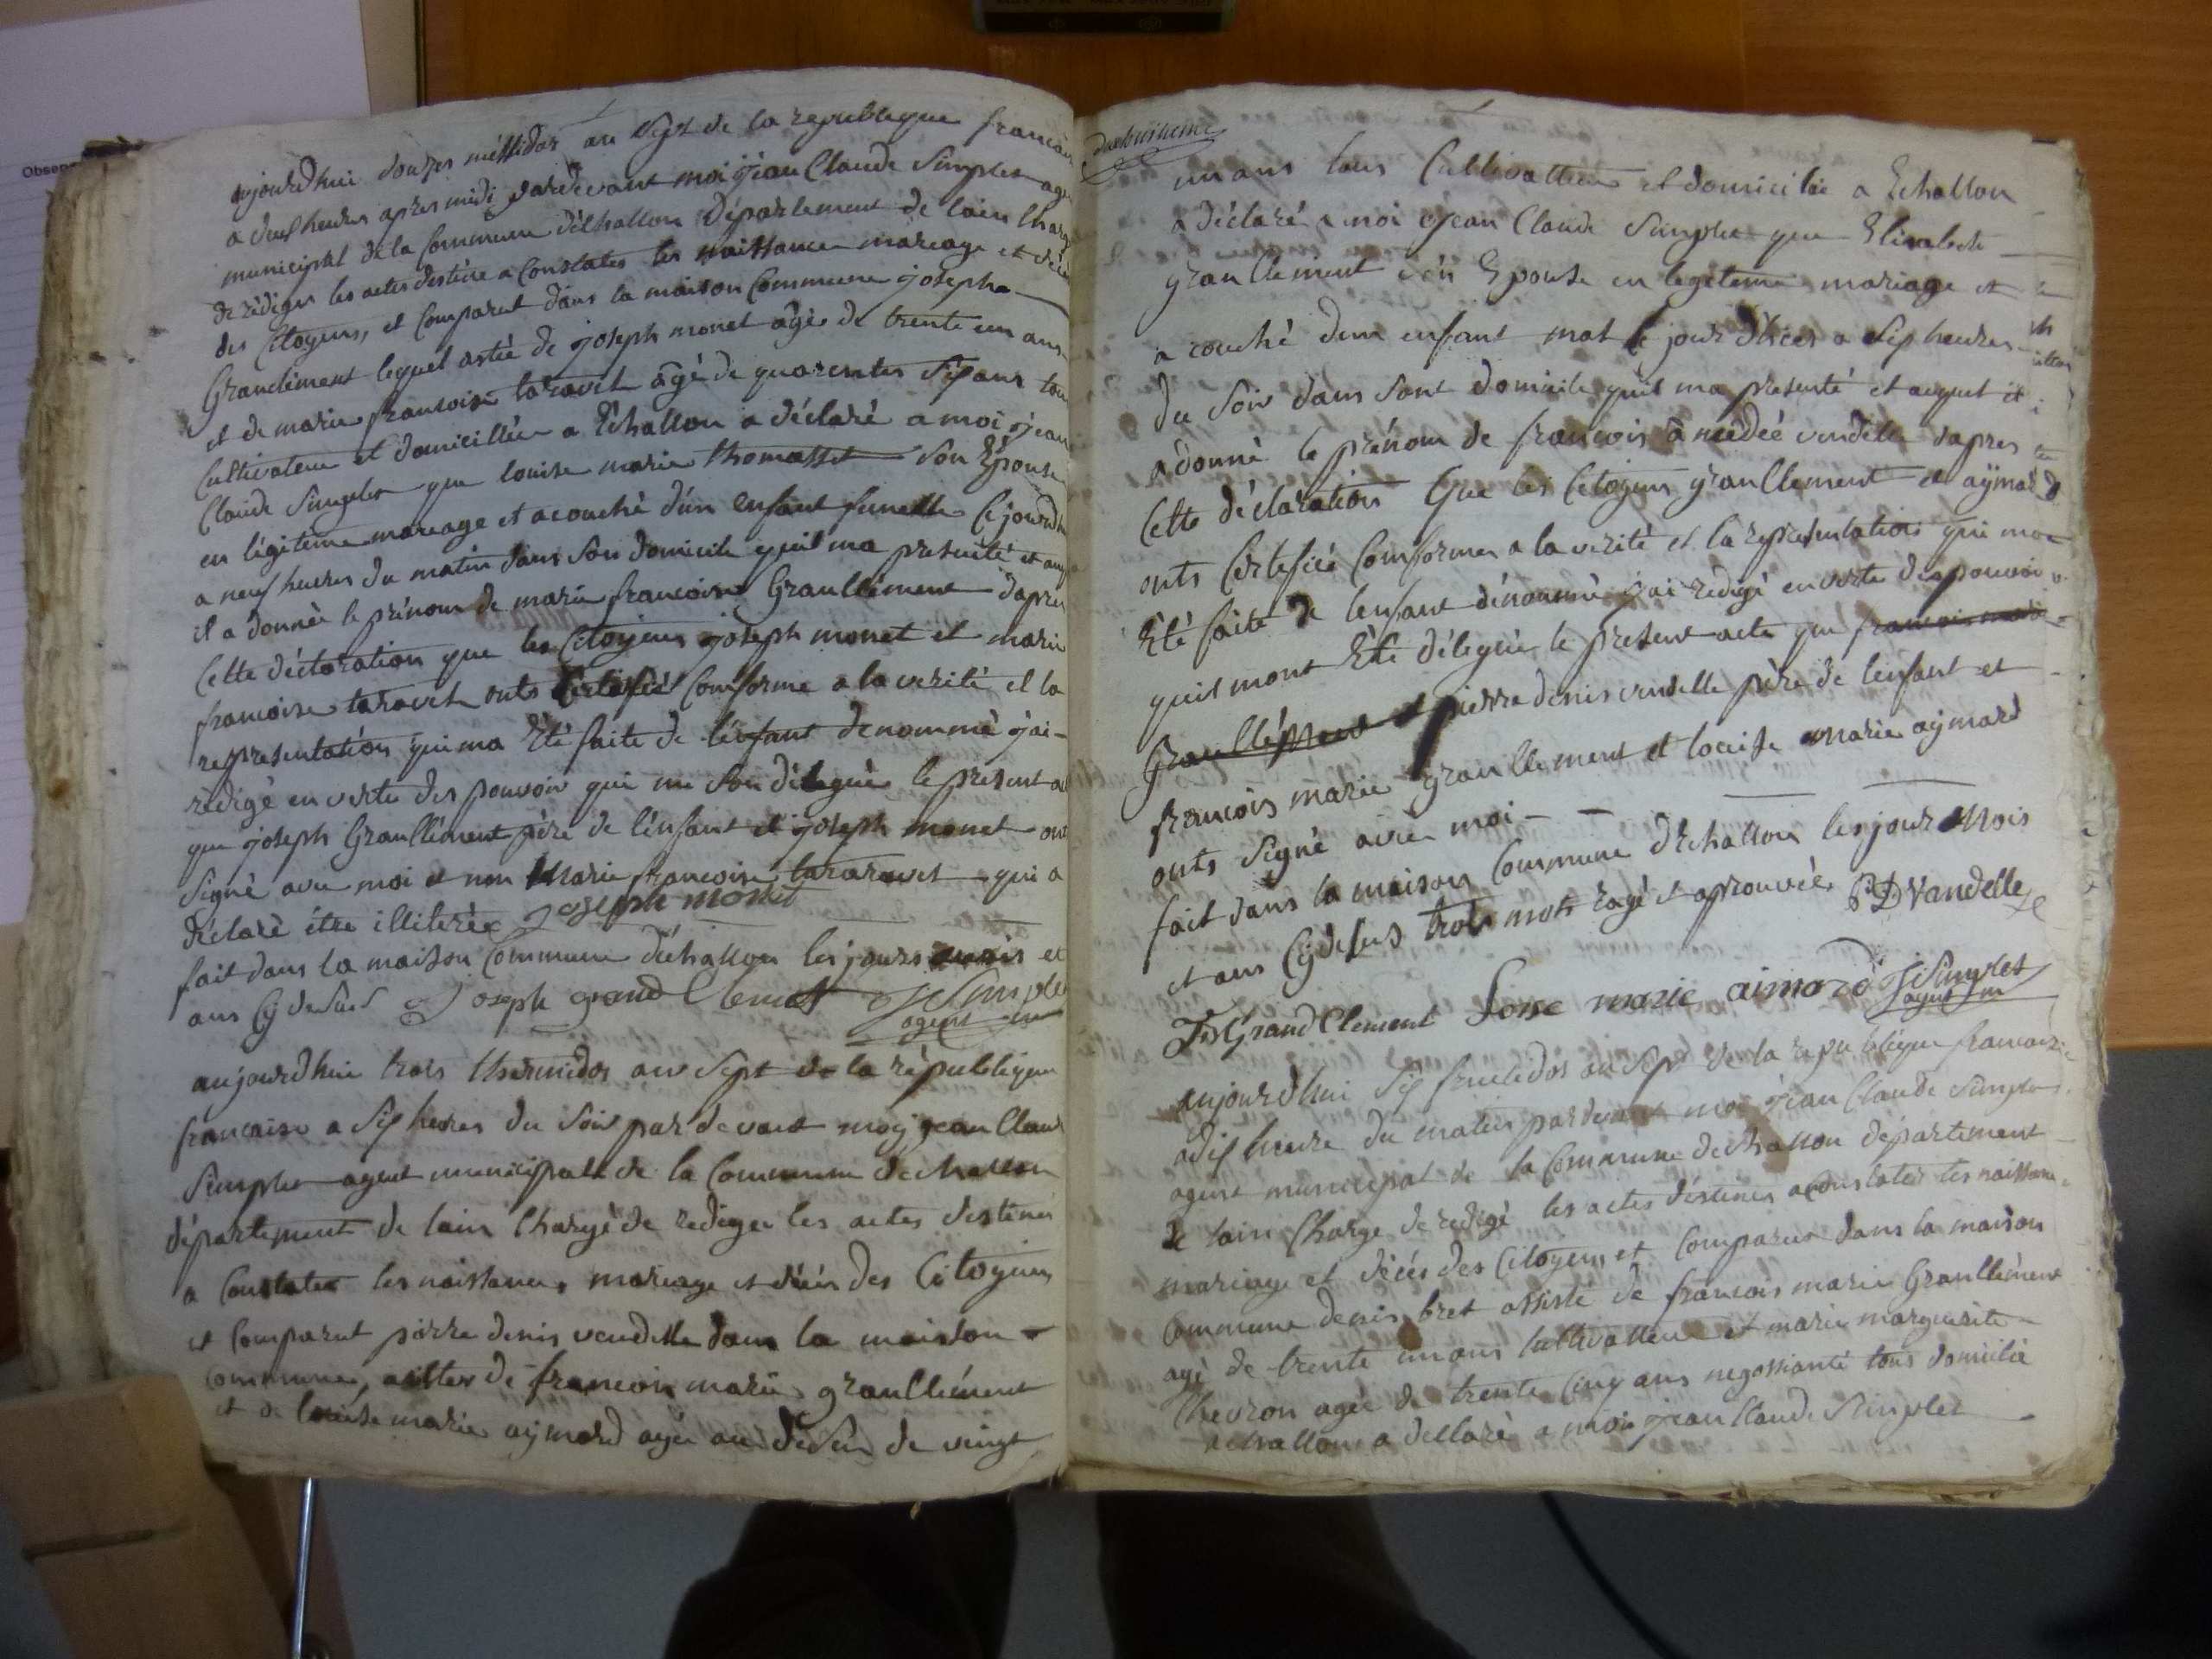 aujourdhui douzes méssidor an sept de la republique francaise
a deux heures apres midi pardevant moi jean Claude Simplet agent
municipal de la Commune déchallon Département de lain Charge
de rédiger les actes destine a Constater les naissance mareage et décès
des Citoyens, et Comparut dans la maison Commune josephe
Granclément lequel astié de joseph monet âgé de trente un ans
et de marie francoise taravel âgé de quarentes six ans tou
Cultivateur et domicillée a Échallon a déclaré a moi jean
Claude Simplet que louise marie thomasset son Épouse
en légiteme mareage et acouché dun enfant funelle Ce jourdh
a neuf heures du matin dans son domicile quil ma presenté et auq
il a donnèe le prénom de marie francoise Granllément dapres
Cette déctaration que les Citoyens joseph monet et marie
francoise taravet onts Certifié Conforme a la verité et la
representation qui ma Eté faite de lénfant denommé jai
redigé en vertu des pouvoir qui me son délegué le present a
que joseph Granllément père de lénfant et joseph monet ont
Signé avec moi et non Marie francoise tararavet qui a
déclaré étre illiterée joseph monet
fait dans la maison Commune déchallon les jours mois et
ans Cy desus Joseph grand Clement JC Simplet
agent m
aujourdhui trois thermidor an sept de la république
francaise a Six heures du Soir par devant moy jean Claude
Simplet agent municipale de la Commune dechallon
département de lain Chargé de rediger les actes destines
a Constater les naissance, mareage et décés des Citoyens
et Comparut pierre denis vendelle dans la maison
Commune, asister de francois marie granllément
et de louise marie aymard agée au desus de vingt
dixhuitieme
un ans tous Cultivatteur et domiciliée a Échallon
a déclaré a moi jean Claude Simplet que Elisabete
granllement son Épouse en legiteme mariage et
a couché dun enfant mal le jour dhier a Six heures
du Soir dans sont domicile quil ma presenté et auquel il
a donné le prénom de francois amedée vendelle dapres
Cette déclaration que les Citoyens granllement et aymard
onts Certifiée Conforme a la verité et la representation qui ma
Eté faite de lenfant dénommé jai rédigé en vertu des pouvoir
quil mont Eté délegués le present acte que francois marie
Granllément et pierre denis vendelle père de lenfant et
francois marie granllement et louise marie aymard
onts signé avec moi
fait dans la maison Commune dEchallon les jour Mois
et ans Cy desus trois mots rayé et aprouvée P D Vandelle
F M Grand Clement Loise marie aimard JC Simplet
agent m
aujourdhui Six fructidor an Sept de la republique francaise
a dix heure du matin pardevant moi jean Claude Simplet
agent municipal de la Commune dechallon département
de lain Charge de redigé les actes déstines a Constater les naissance
mariage et décés des Citoyens et Comparut dans la maison
Commune denis bret assisté de francois marie Granllément
agé de trente un ans Cultivatteur et marie marguerite
Chevron agée de trente Cinq ans negossiante tous domicilié
a Echallon a déllaré a moi jean Claude Simplet